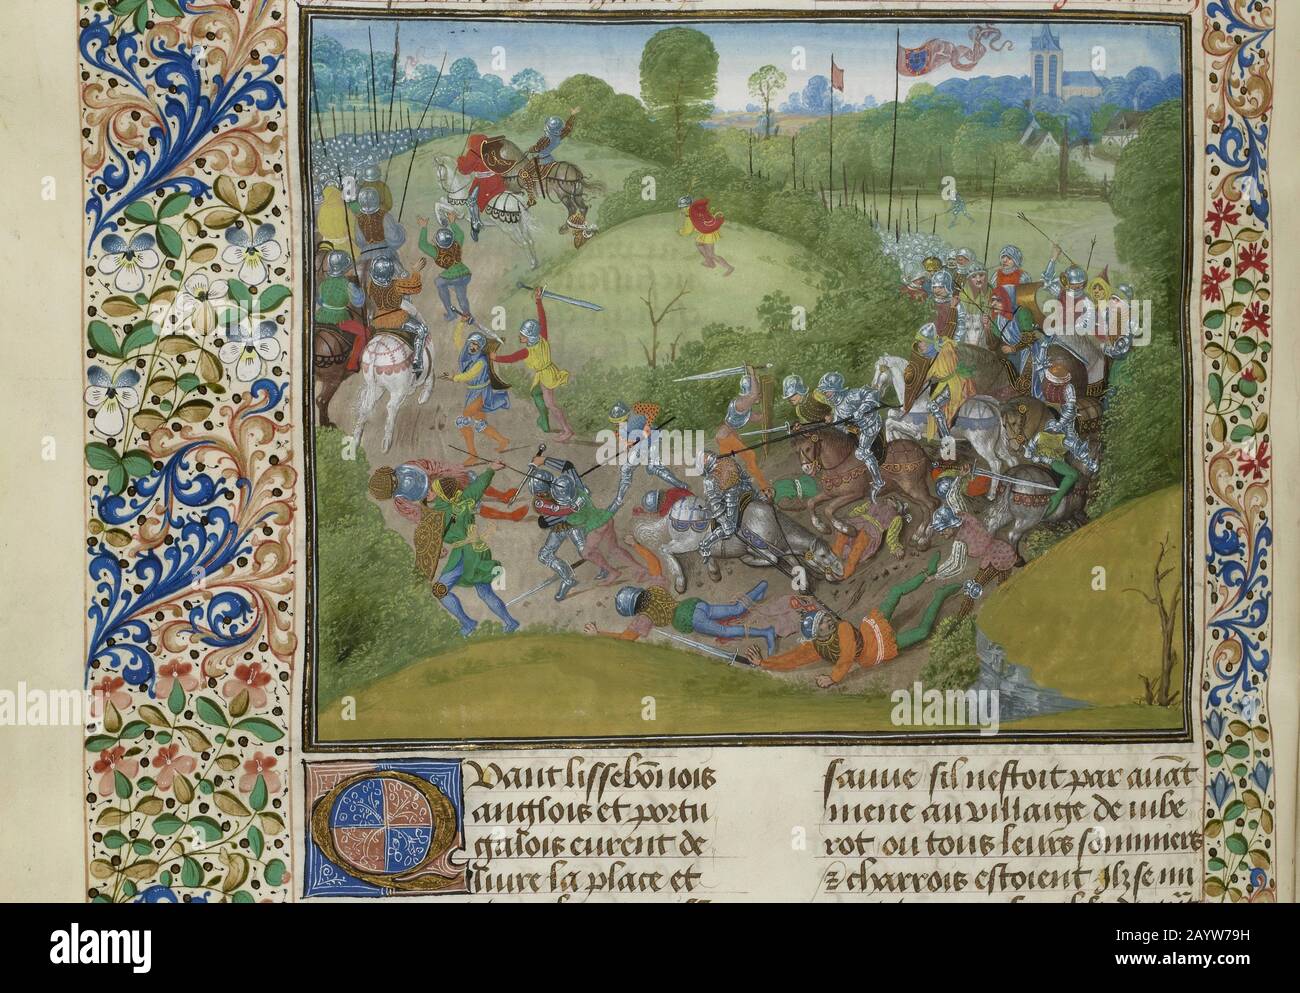 Quant lissebonnois
anglois et portu
galois eurent de
livre la place et
sauue sil nestoit par auāt
mene au villaige de iube
rot ou tous leurs sommiers
⁊ charrois estoient Ilz se mi
alamy
Image ID: 2AYW79H
www.alamy.com